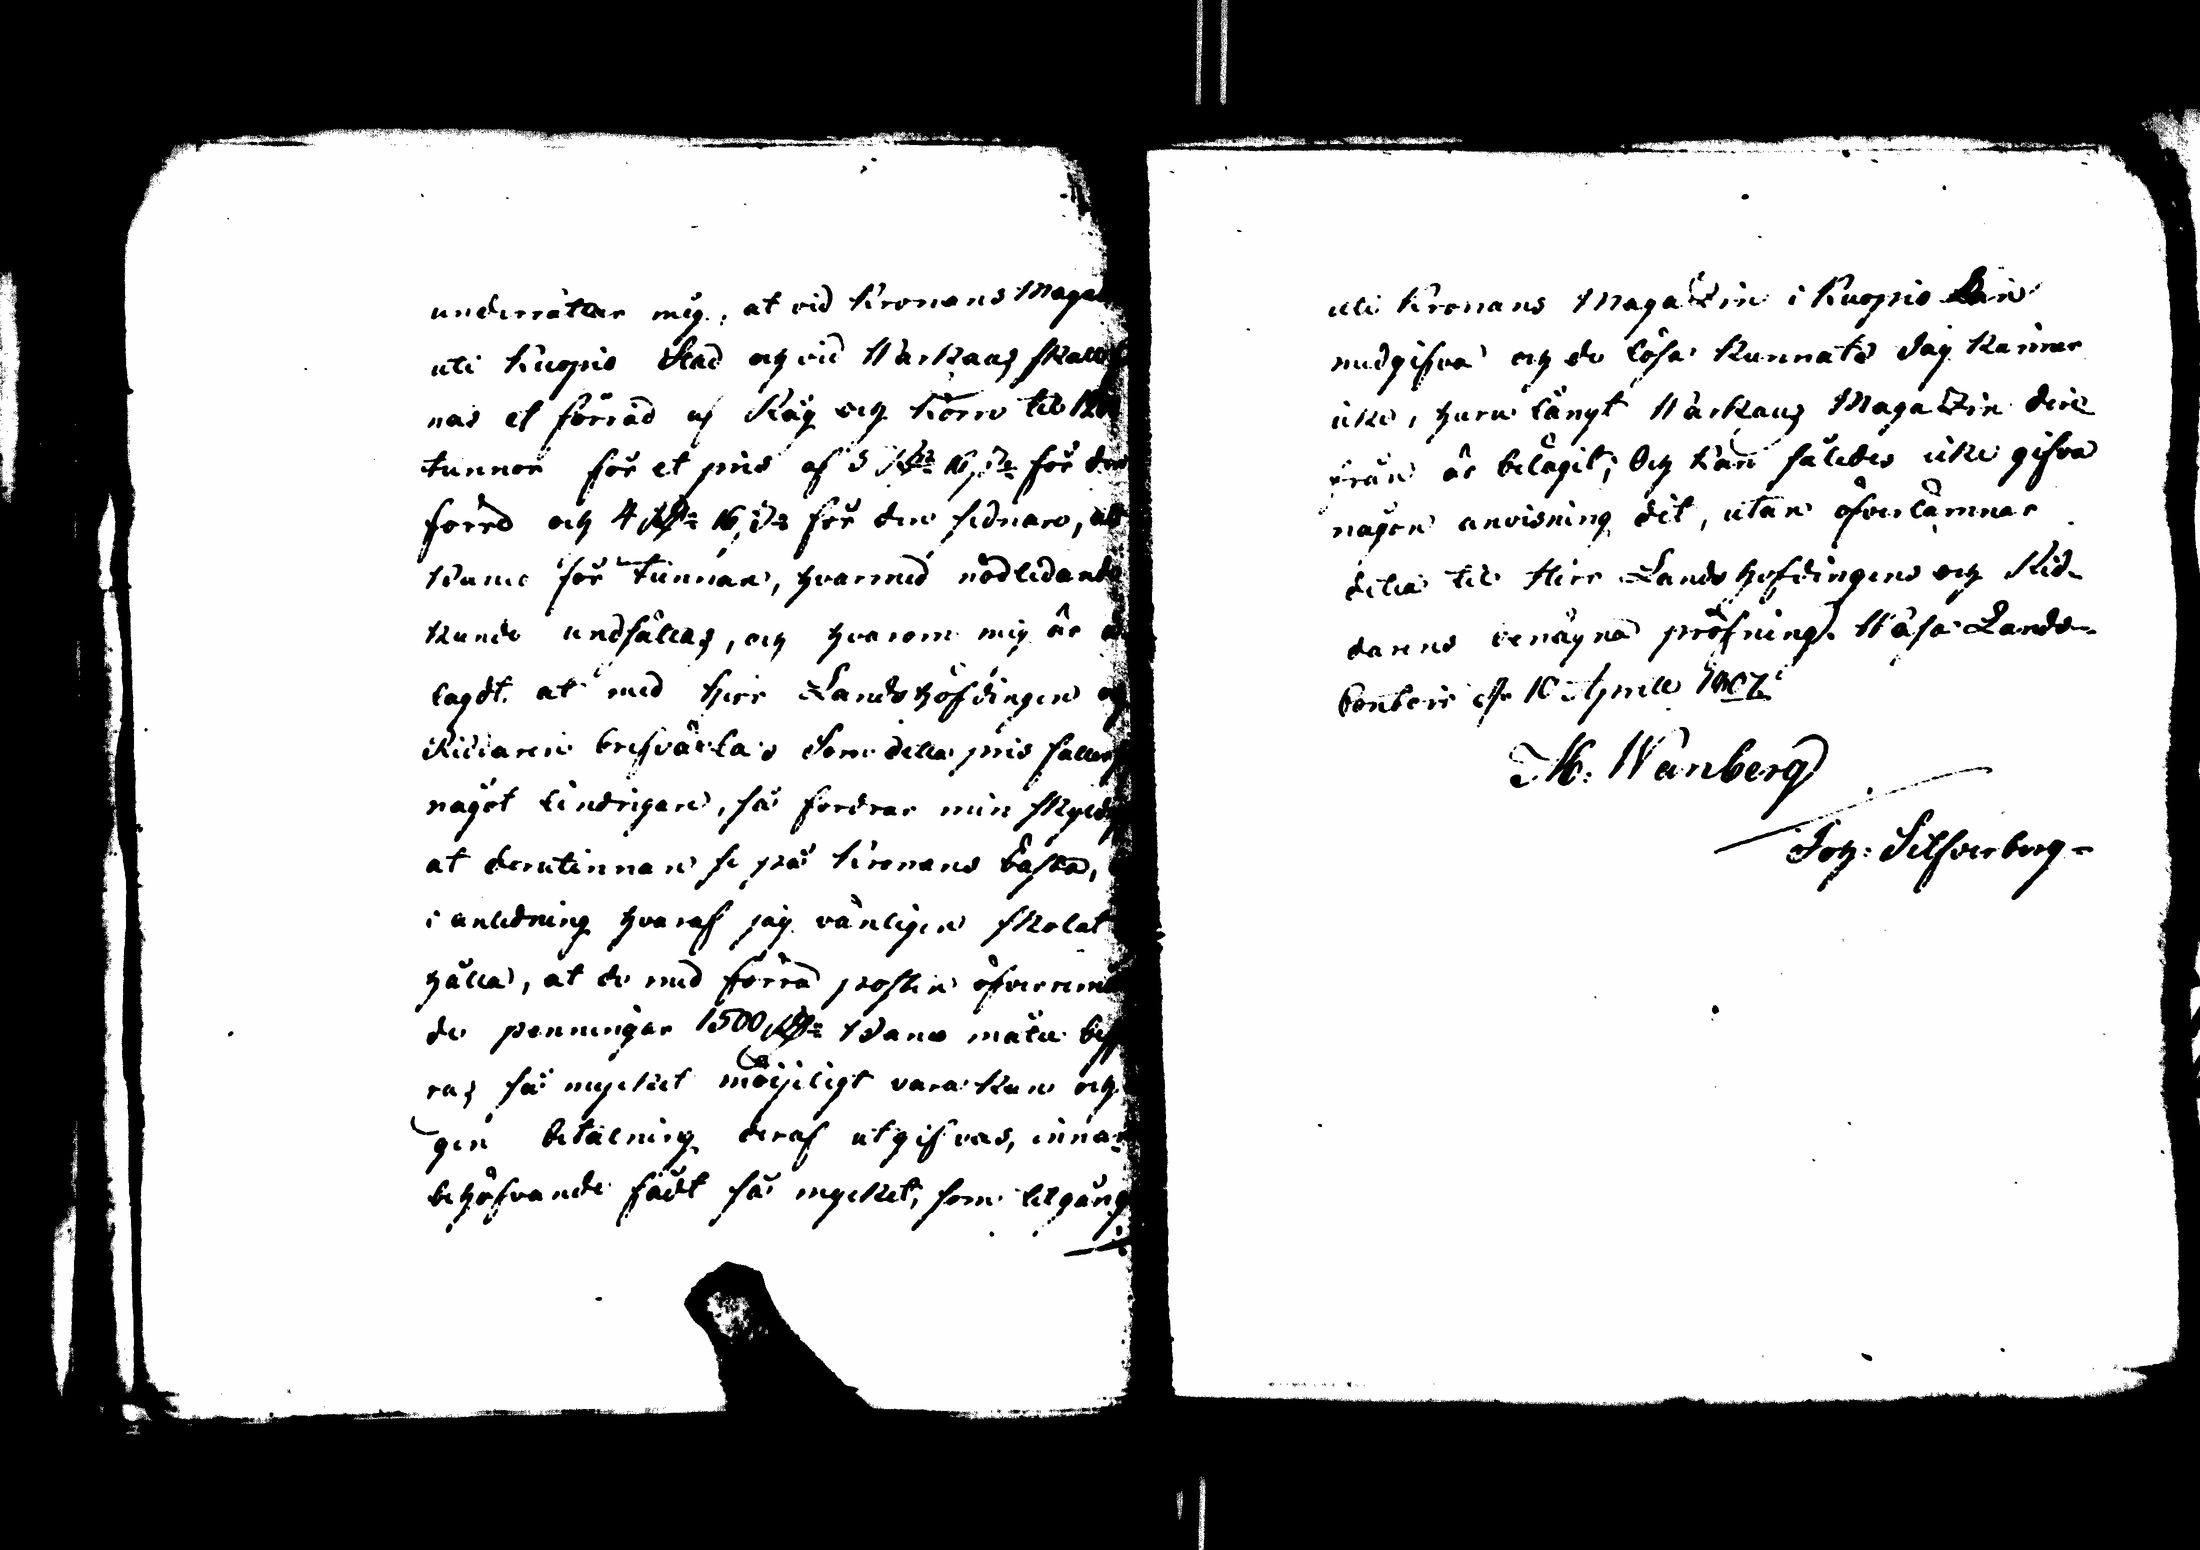 underrättar mig, at vid Kronans Maga
uti Kuopio Stad och vid Warkaus skall
nas et förråd af Råg och Körn til
tunnor för et pris af 5 Rd 16 s. för den
förra och 4 Rd 16 s. för den sednare, alt
Banco för Tunnan, hvarmed nödlidande
kunde undsättas, och hvarom mig är å
lagdt at med Herr Landshöfdingen og
Riddaren brefväxla; Som detta pris faller
något lindrigare, så fordrar min skyld
at derutinnan se på Kronans bästa,
i anledning hvaraf jag vänligen skolat
hålla, at de med förra posten öfversänd
de penningar 1500 Rd Banco måtte bes
ras så mycket möijeligt vara kan och
gen betalning deraf utgifvas, innan
behöfvande fådt så mycket, som tilgång
uti Kronans Magazin i Kuopio Län
medgifva och de lösa kunnat. Jag känner
icke, huru långt Warkaus Magazin der
ifrån är belägit; Och kan således icke gifva
någon anvisning dit, utan öfverlämnar
detta til Herr Landshöfdingens och Rid-
darens benägna pröfning. Wasa Lands-
Contoir d. 10 Aprill 1807.
M: Wanberg
Joh: Silfverberg